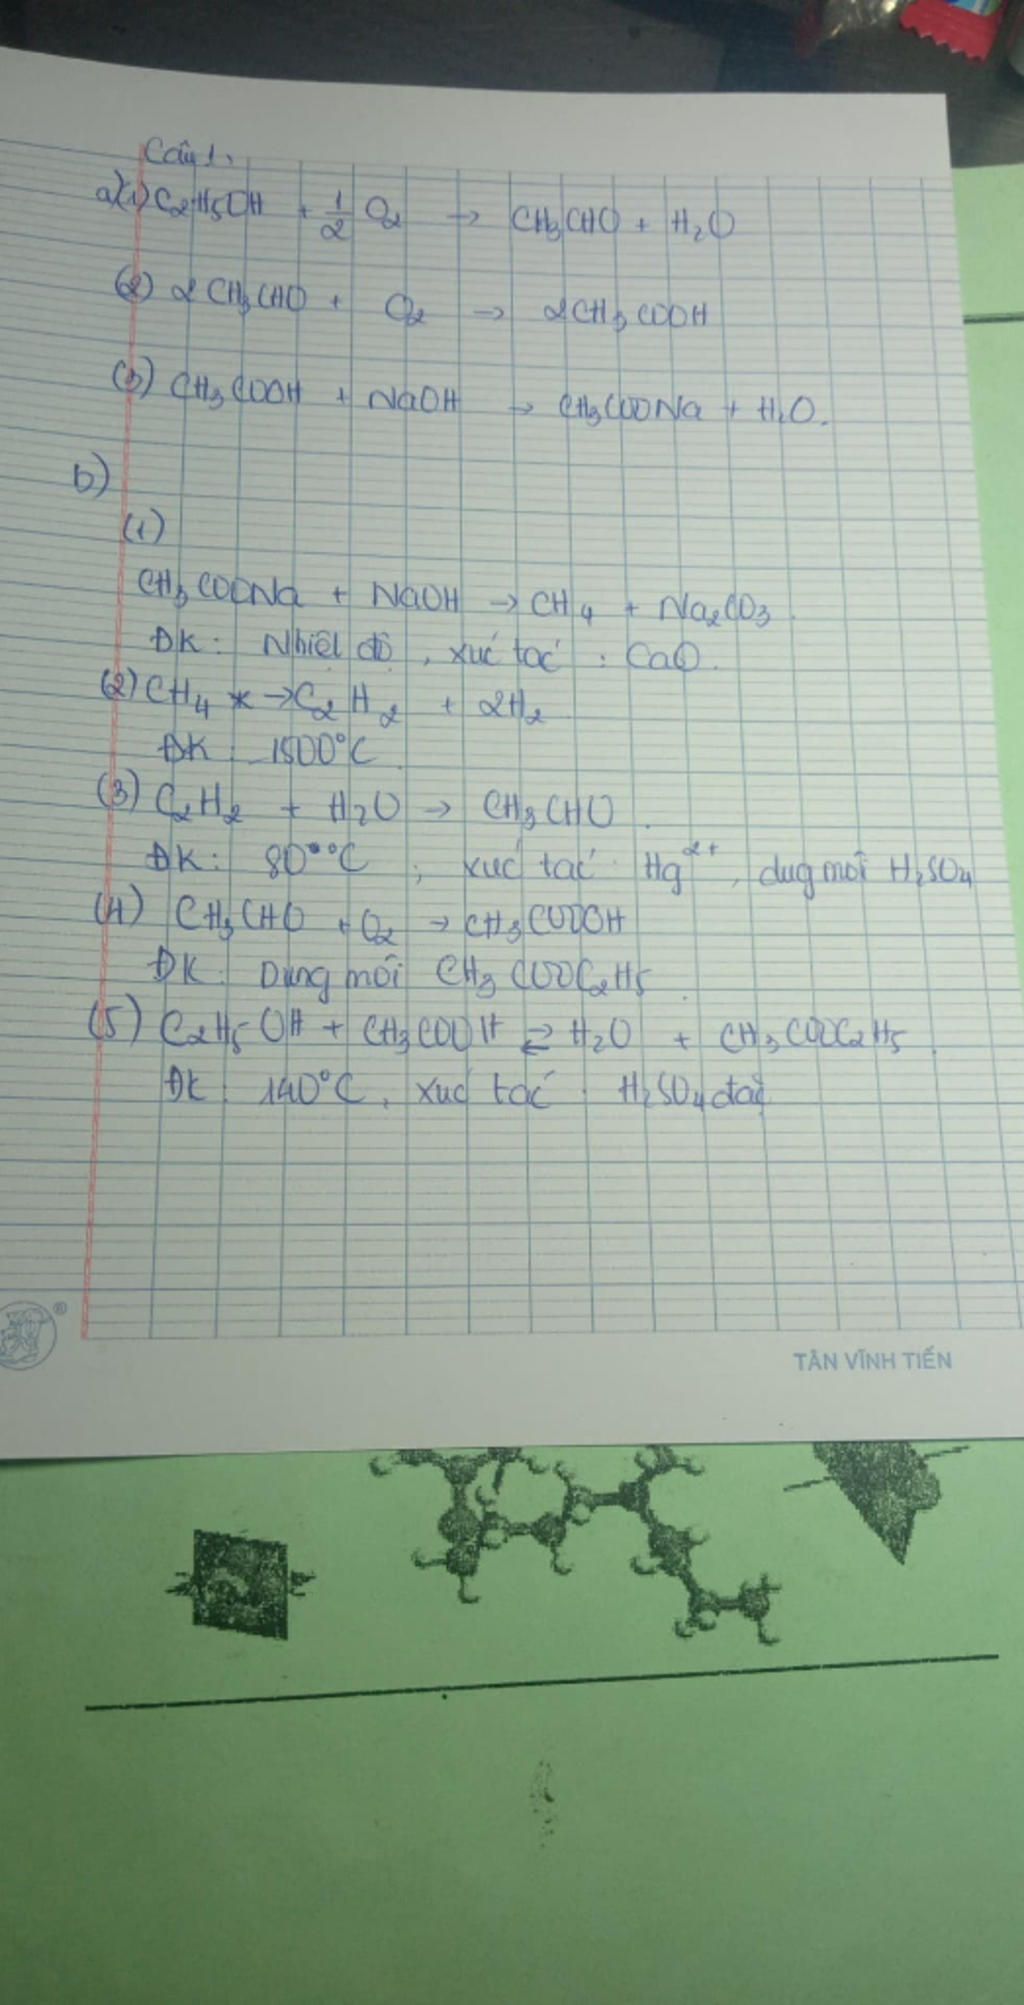 Câu 1.
a) (1) C2H5OH + 1/2 O2 → CH3CHO + H2O
(2) 2CH3CHO + O2 → 2CH3COOH
(3) CH3COOH + NaOH → CH3COONa + H2O.
b)
(1)
CH3COONa + NaOH → CH4 + Na2CO3.
ĐK: Nhiệt độ, xúc tác: CaO.
(2) CH4 → C2H2 + 2H2
ĐK: 1500°C.
(3) C2H2 + H2O → CH3CHO.
ĐK: 80°C; xúc tác: Hg2+, dug môi H2SO4
(4) CH3CHO + O2 → CH3COOH
ĐK: Dung môi CH3COOC2H5.
(5) C2H5OH + CH3COOH ⇌ H2O + CH3COOC2H5.
ĐK: 140°C, xúc tác: H2SO4 đặc
®
TÂN VĨNH TIẾN